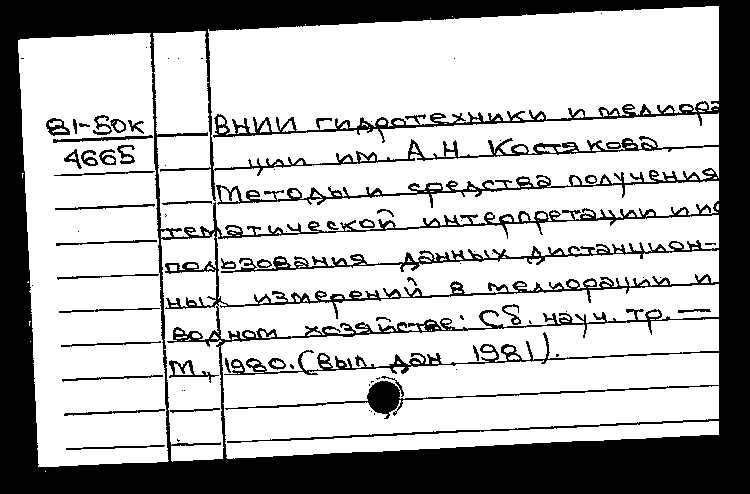 81-50к
4665
ВНИИ гидротехники и мелиора
ции им. А.Н. Костякова.
Методы и средства получения
тематической интерпретации и ис
пользования данных дистанцион-
ных измерений в мелиорации и
водном хозяйстве: Сб. науч. тр. —
М., 1980. (Вып. дан. 1981).